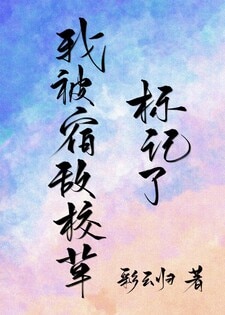 我被宿敌校草
标记了
彩云归 著